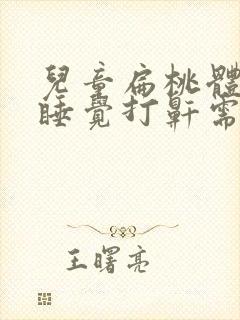 兒童扁桃體
睡覺打鼾需
王曙亮